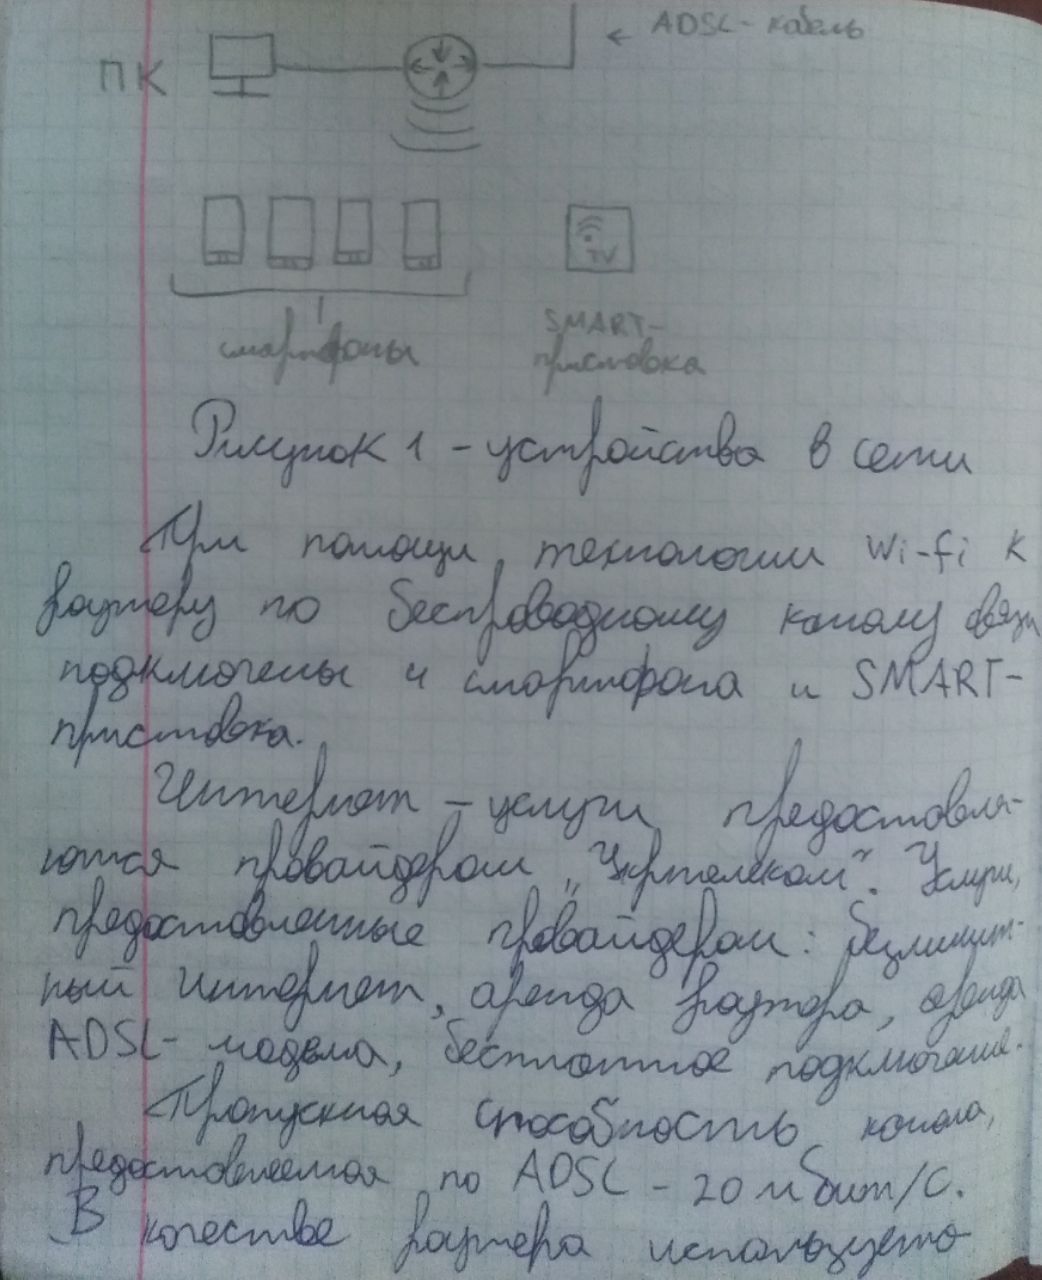 ← ADSL-кабель
ПК
TV
смартфоны
SMART-
приставка
Рисунок 1 - устройства в сети
При помощи технологии Wi-fi к
роутеру по беспроводному каналу связи
подключены 4 смартфона и SMART-
приставка.
Интернет - услуги предоставля-
ются провайдером „Укртелеком". Услуги,
предоставленные провайдером: безлимит-
ный интернет, аренда роутера, аренда
ADSL- модема, бесплатное подключение.
Пропускная способность канала,
предоставляемая по ADSL - 20 мбит/с.
В качестве роутера используется